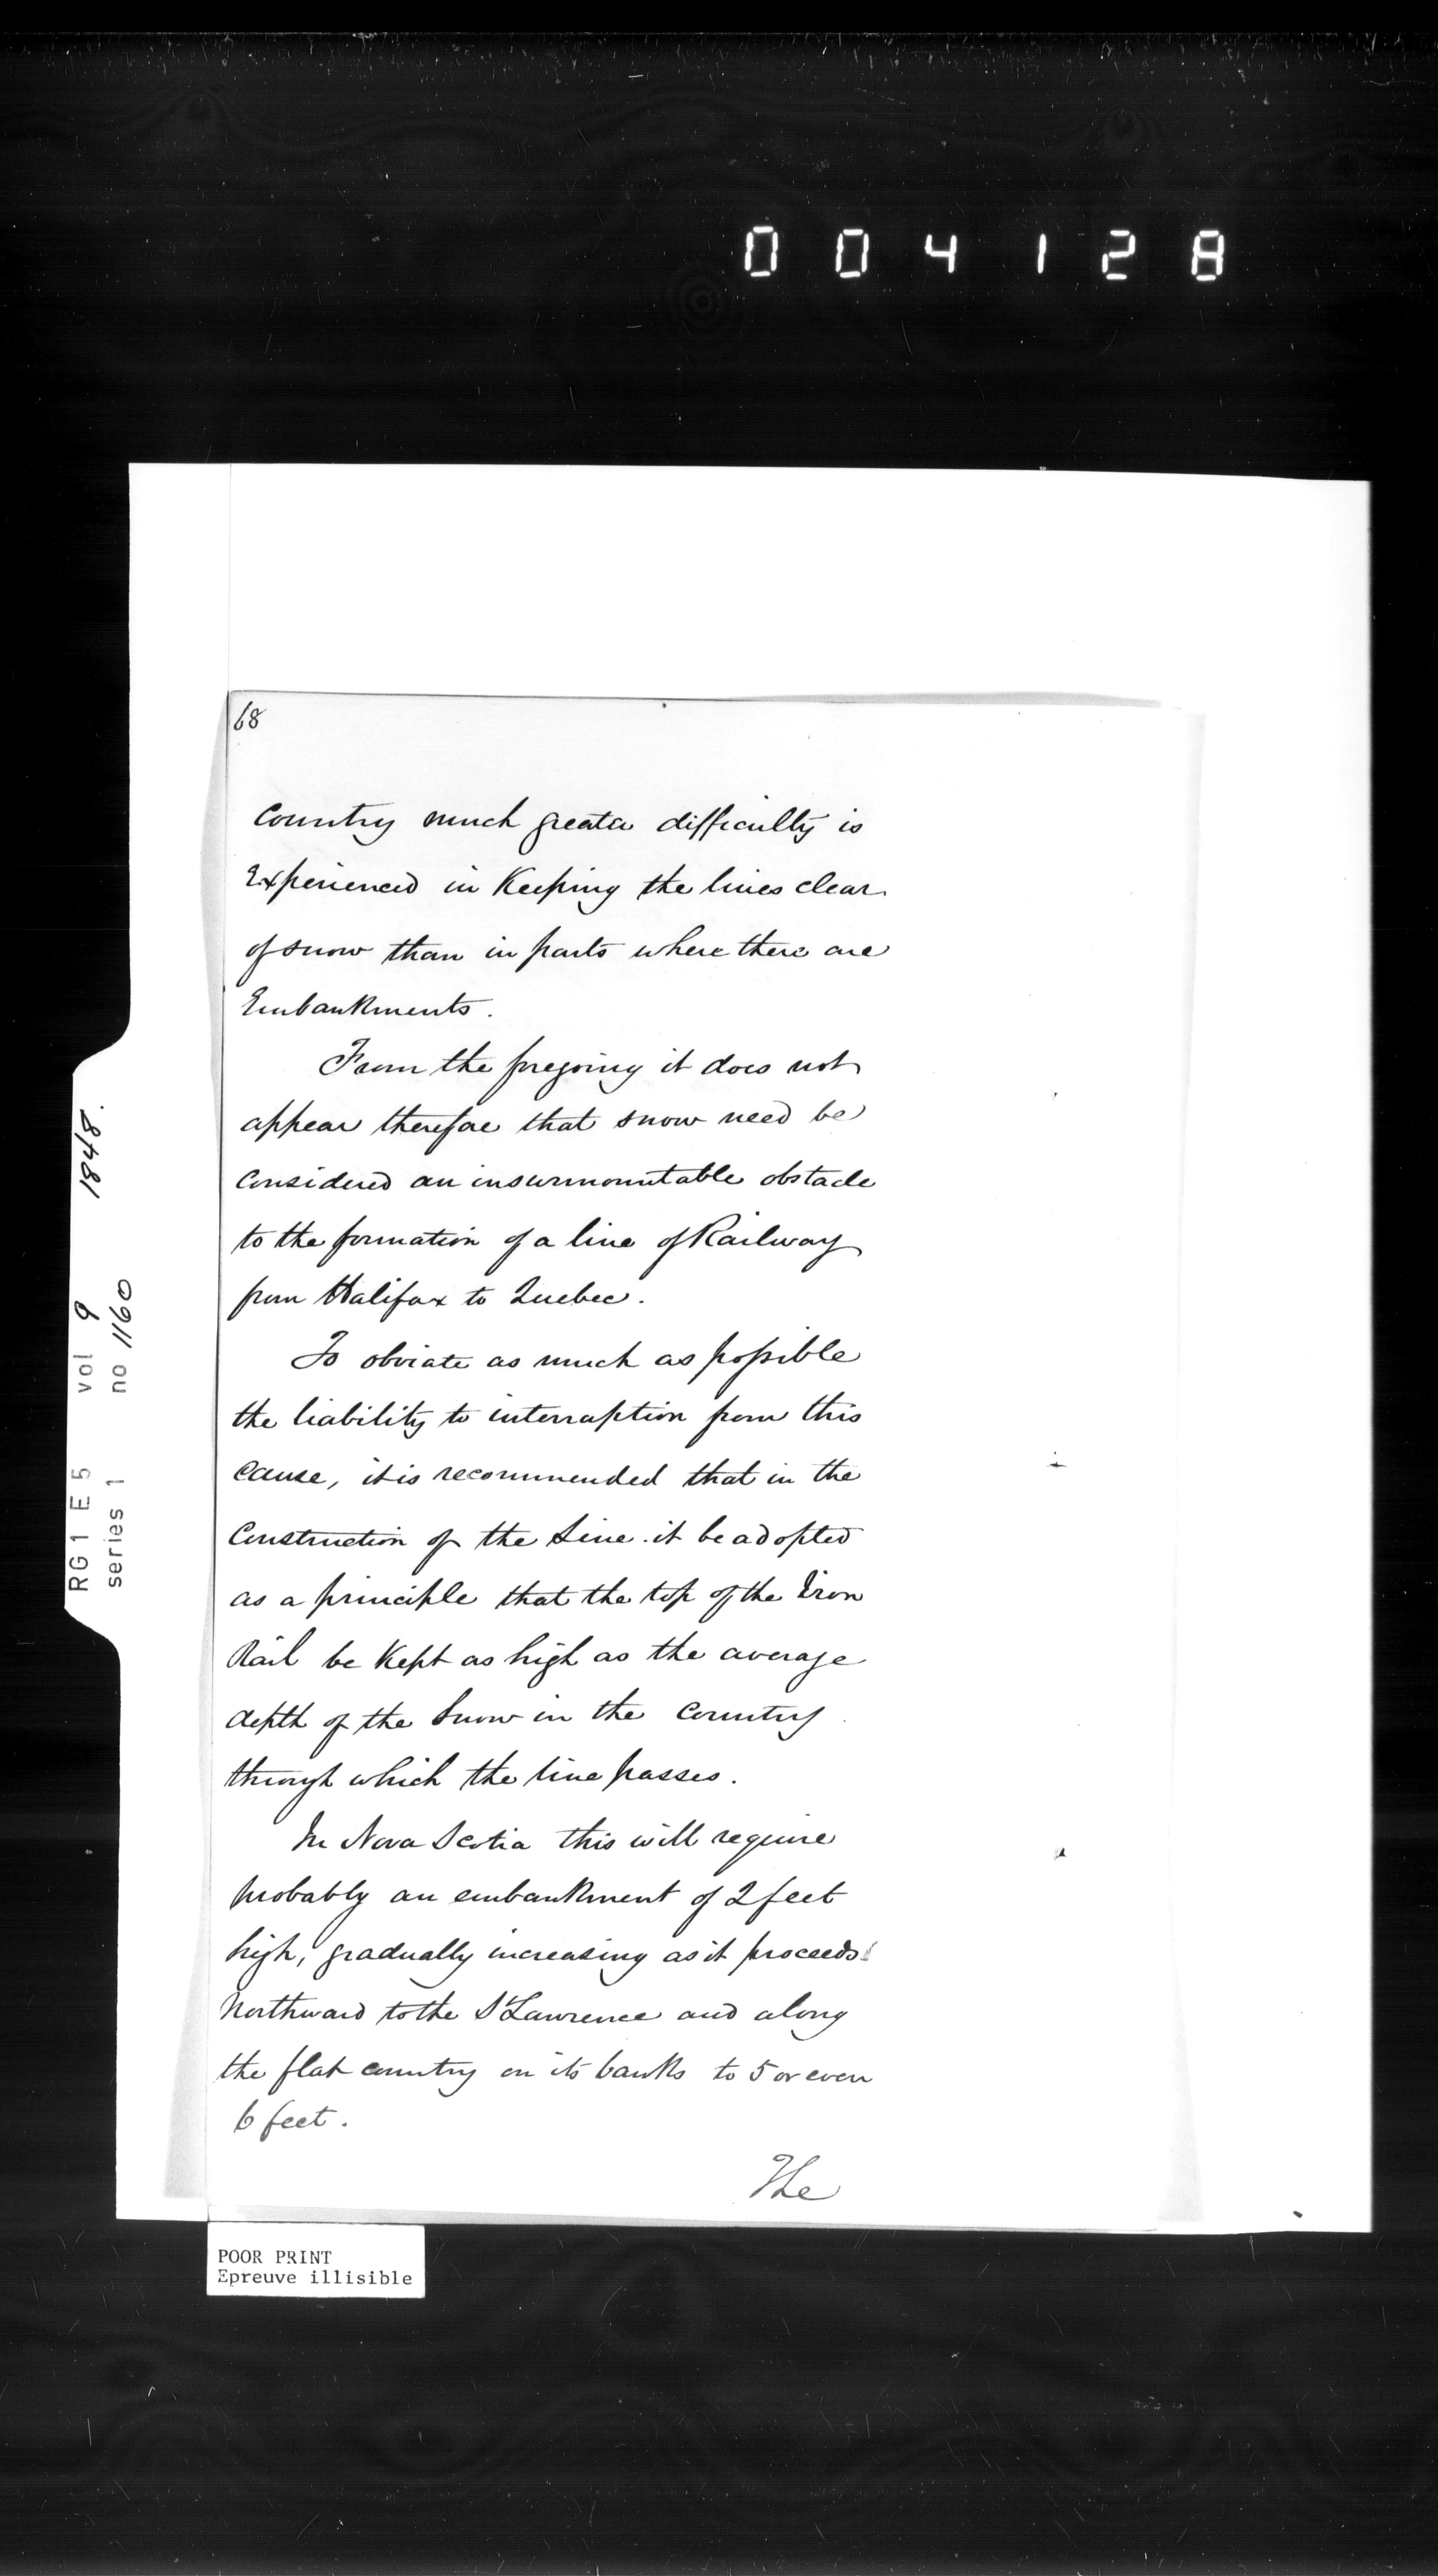 004128
68
Country much greater difficulty is
Experienced in Keeping the lines clear
of snow than in parts where there are
Embankments.
From the foregoing it does not
appear therefore that snow need be
Considered an insurmountable obstacle
to the formation of a line of Railway
from Halifax to Quebec.
To obviate as much as possible
the liability to interruption from this
Cause, it is recommended that in the
Construction of the Line it be adopted
as a principle that the top of the Iron
Rail be Kept as high as the average
depth of the Snow in the Country
through which the line passes.
In Nova Scotia this will require
probably an embankment of 2 feet
high, gradually increasing as it proceeds
Northward to the St Lawrence and along
the flat country on its banks to 5 or even
6 feet.
The
RG1 E5 vol 9 1848.
series 1 no 1160
POOR PRINT
Epreuve illisible